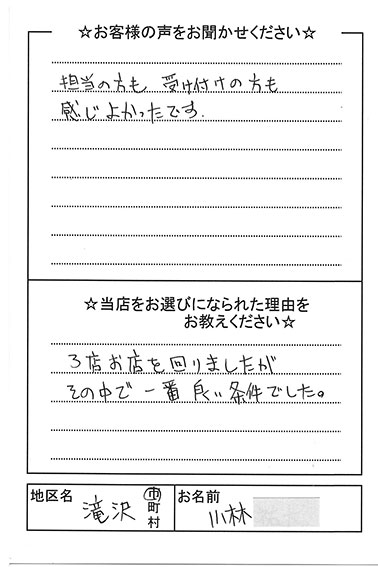 ☆お客様の声をお聞かせください☆
担当の方も 受け付けの方も
感じよかったです.
☆当店をお選びになられた理由を
お教えください☆
3店お店を回りましたが
その中で 一番 良い条件でした。
地区名
滝沢
市
町
村
お名前
小林